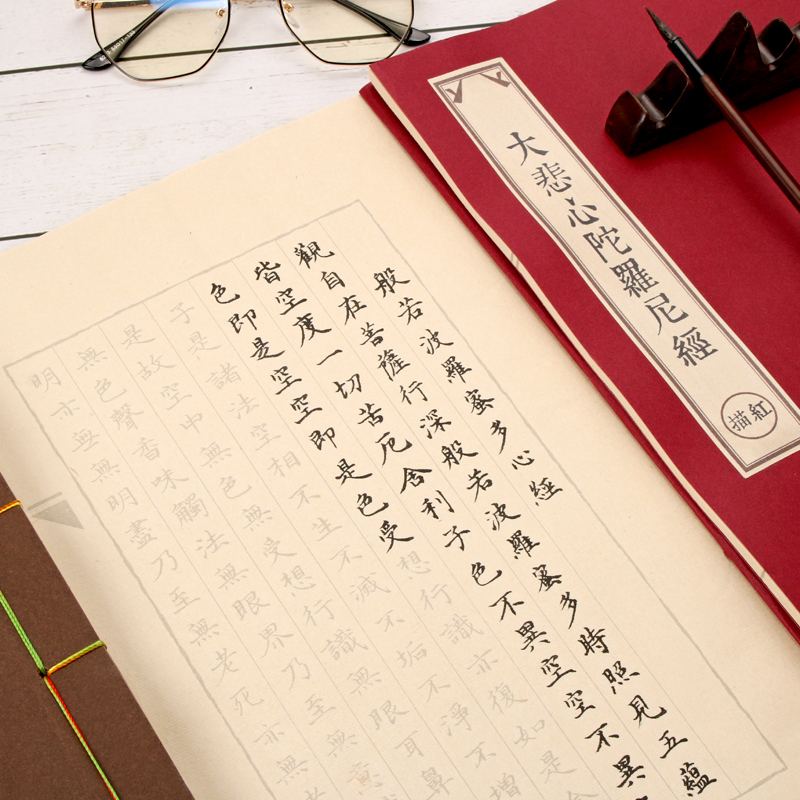 大悲心陀羅尼經
描紅
般若波羅蜜多心經
觀自在菩薩行深般若波羅蜜多時照見五蘊
皆空度一切苦厄舍利子色不異空空不異
色即是空空即是色受想行識亦復如是舍
子是諸法空相不生不滅不垢不淨不增
是故空中無色無受想行識無眼耳鼻
無色聲香味觸法無眼界乃至無意
明亦無無明盡乃至無老死亦無老